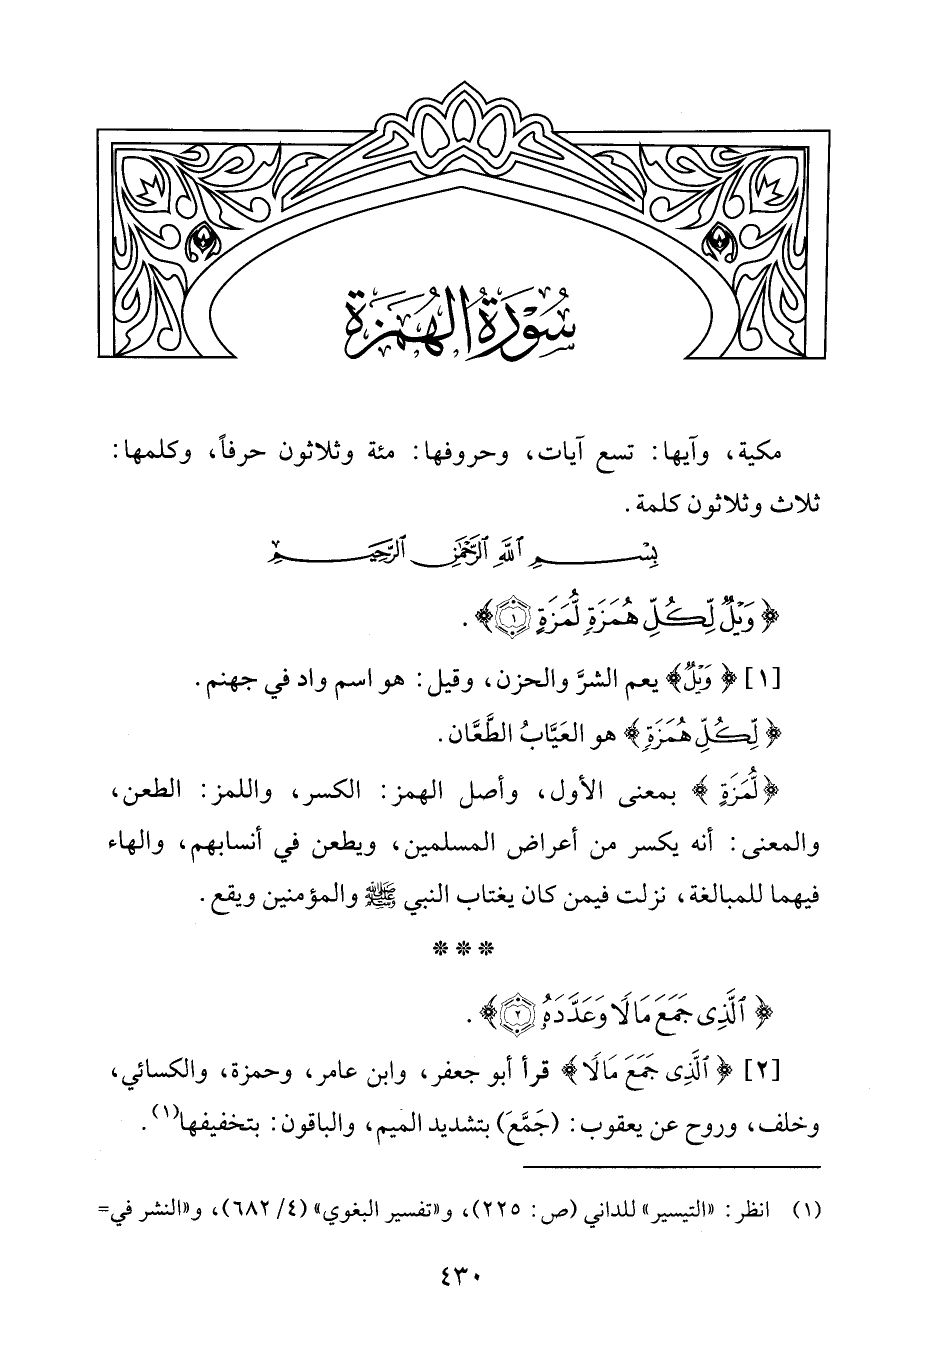 سُورَةُ الهُمَزَة
مكية، وآيها: تسع آيات، وحروفها: مئة وثلاثون حرفاً، وكلمها:
ثلاث وثلاثون كلمة.
بِسْمِ ٱللَّهِ ٱلرَّحْمَٰنِ ٱلرَّحِيمِ
﴿وَيْلٌ لِّكُلِّ هُمَزَةٍ لُّمَزَةٍ ١﴾.
[١] ﴿وَيْلٌ﴾ يعم الشرَّ والحزن، وقيل: هو اسم واد في جهنم.
﴿لِّكُلِّ هُمَزَةٍ﴾ هو العَيَّابُ الطَّعَّان.
﴿لُّمَزَةٍ﴾ بمعنى الأول، وأصل الهمز: الكسر، واللمز: الطعن،
والمعنى: أنه يكسر من أعراض المسلمين، ويطعن في أنسابهم، والهاء
فيهما للمبالغة، نزلت فيمن كان يغتاب النبي ﷺ والمؤمنين ويقع.
* * *
﴿ٱلَّذِى جَمَعَ مَالًا وَعَدَّدَهُۥ ٢﴾.
[٢] ﴿ٱلَّذِى جَمَعَ مَالًا﴾ قرأ أبو جعفر، وابن عامر، وحمزة، والكسائي،
وخلف، وروح عن يعقوب: (جَمَّعَ) بتشديد الميم، والباقون: بتخفيفها(١).
(١) انظر: «التيسير» للداني (ص: ٢٢٥)، و«تفسير البغوي» (٤/ ٦٨٢)، و«النشر في=
٤٣٠